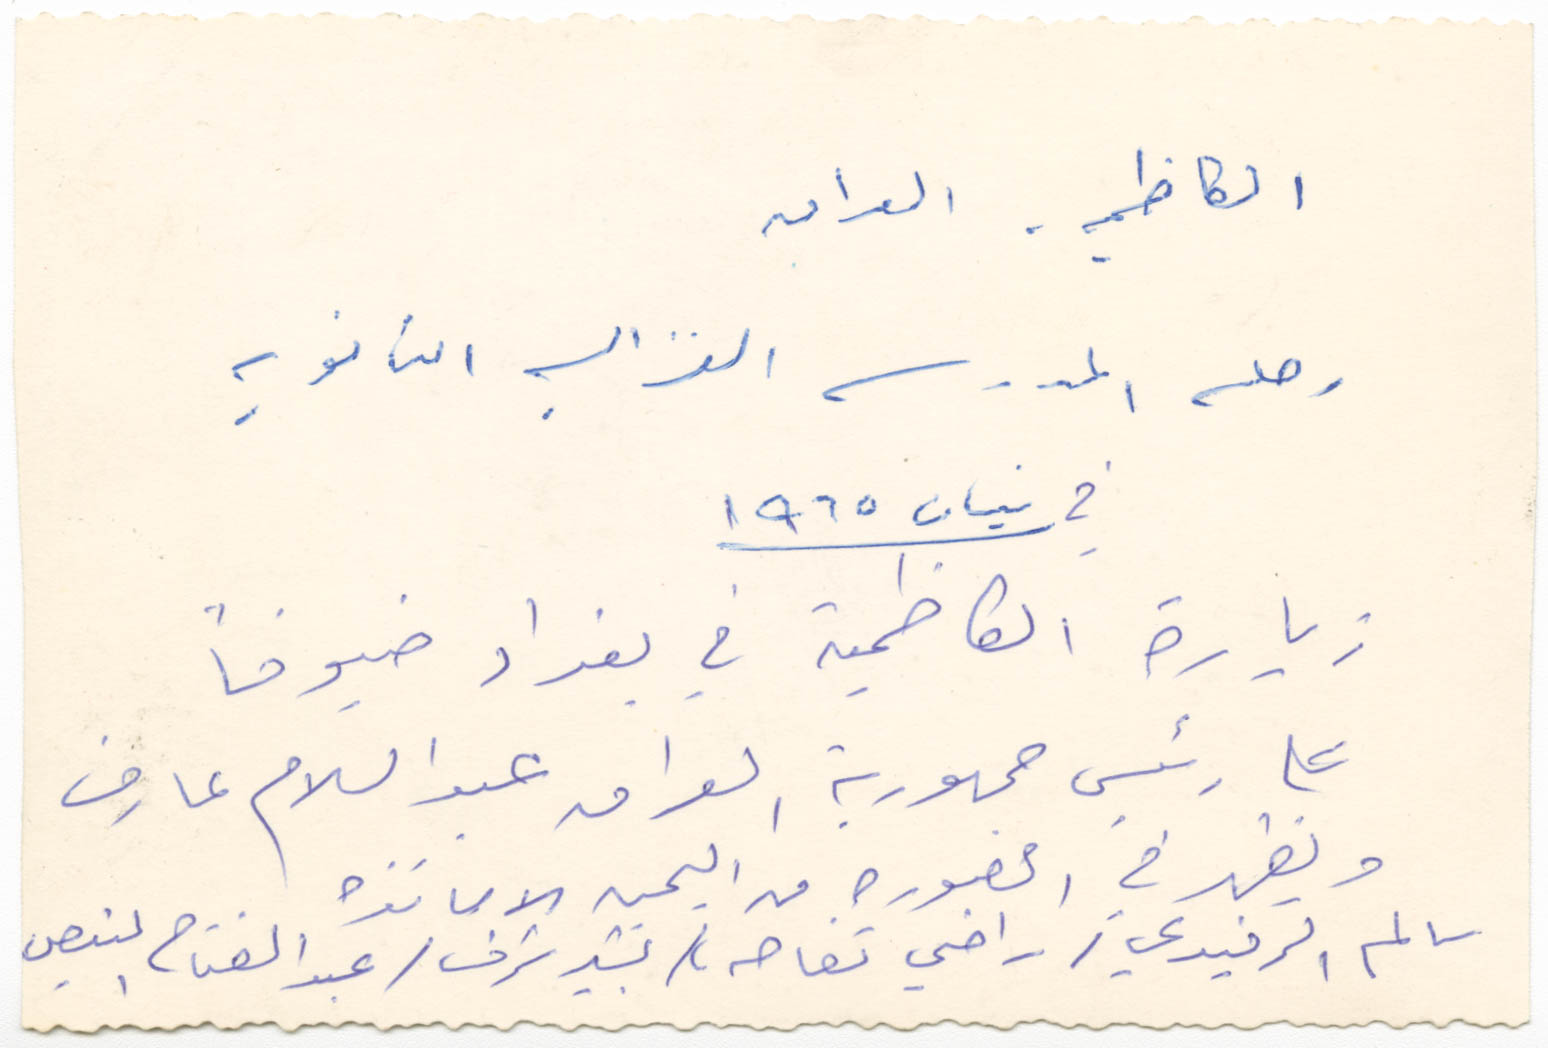 الكاظمية - العراق
رحلة المدرسة الغزالية الثانوية
في نيسان ١٩٦٥
زيارة الكاظمية في بغداد ضيوفاً
على رئيس جمهورية العراق عبد السلام عارف
ويظهر في الصورة من اليمين الاساتذة
سالم الرفيدي / راضي تفاحه / بشير شرف / عبد الفتاح